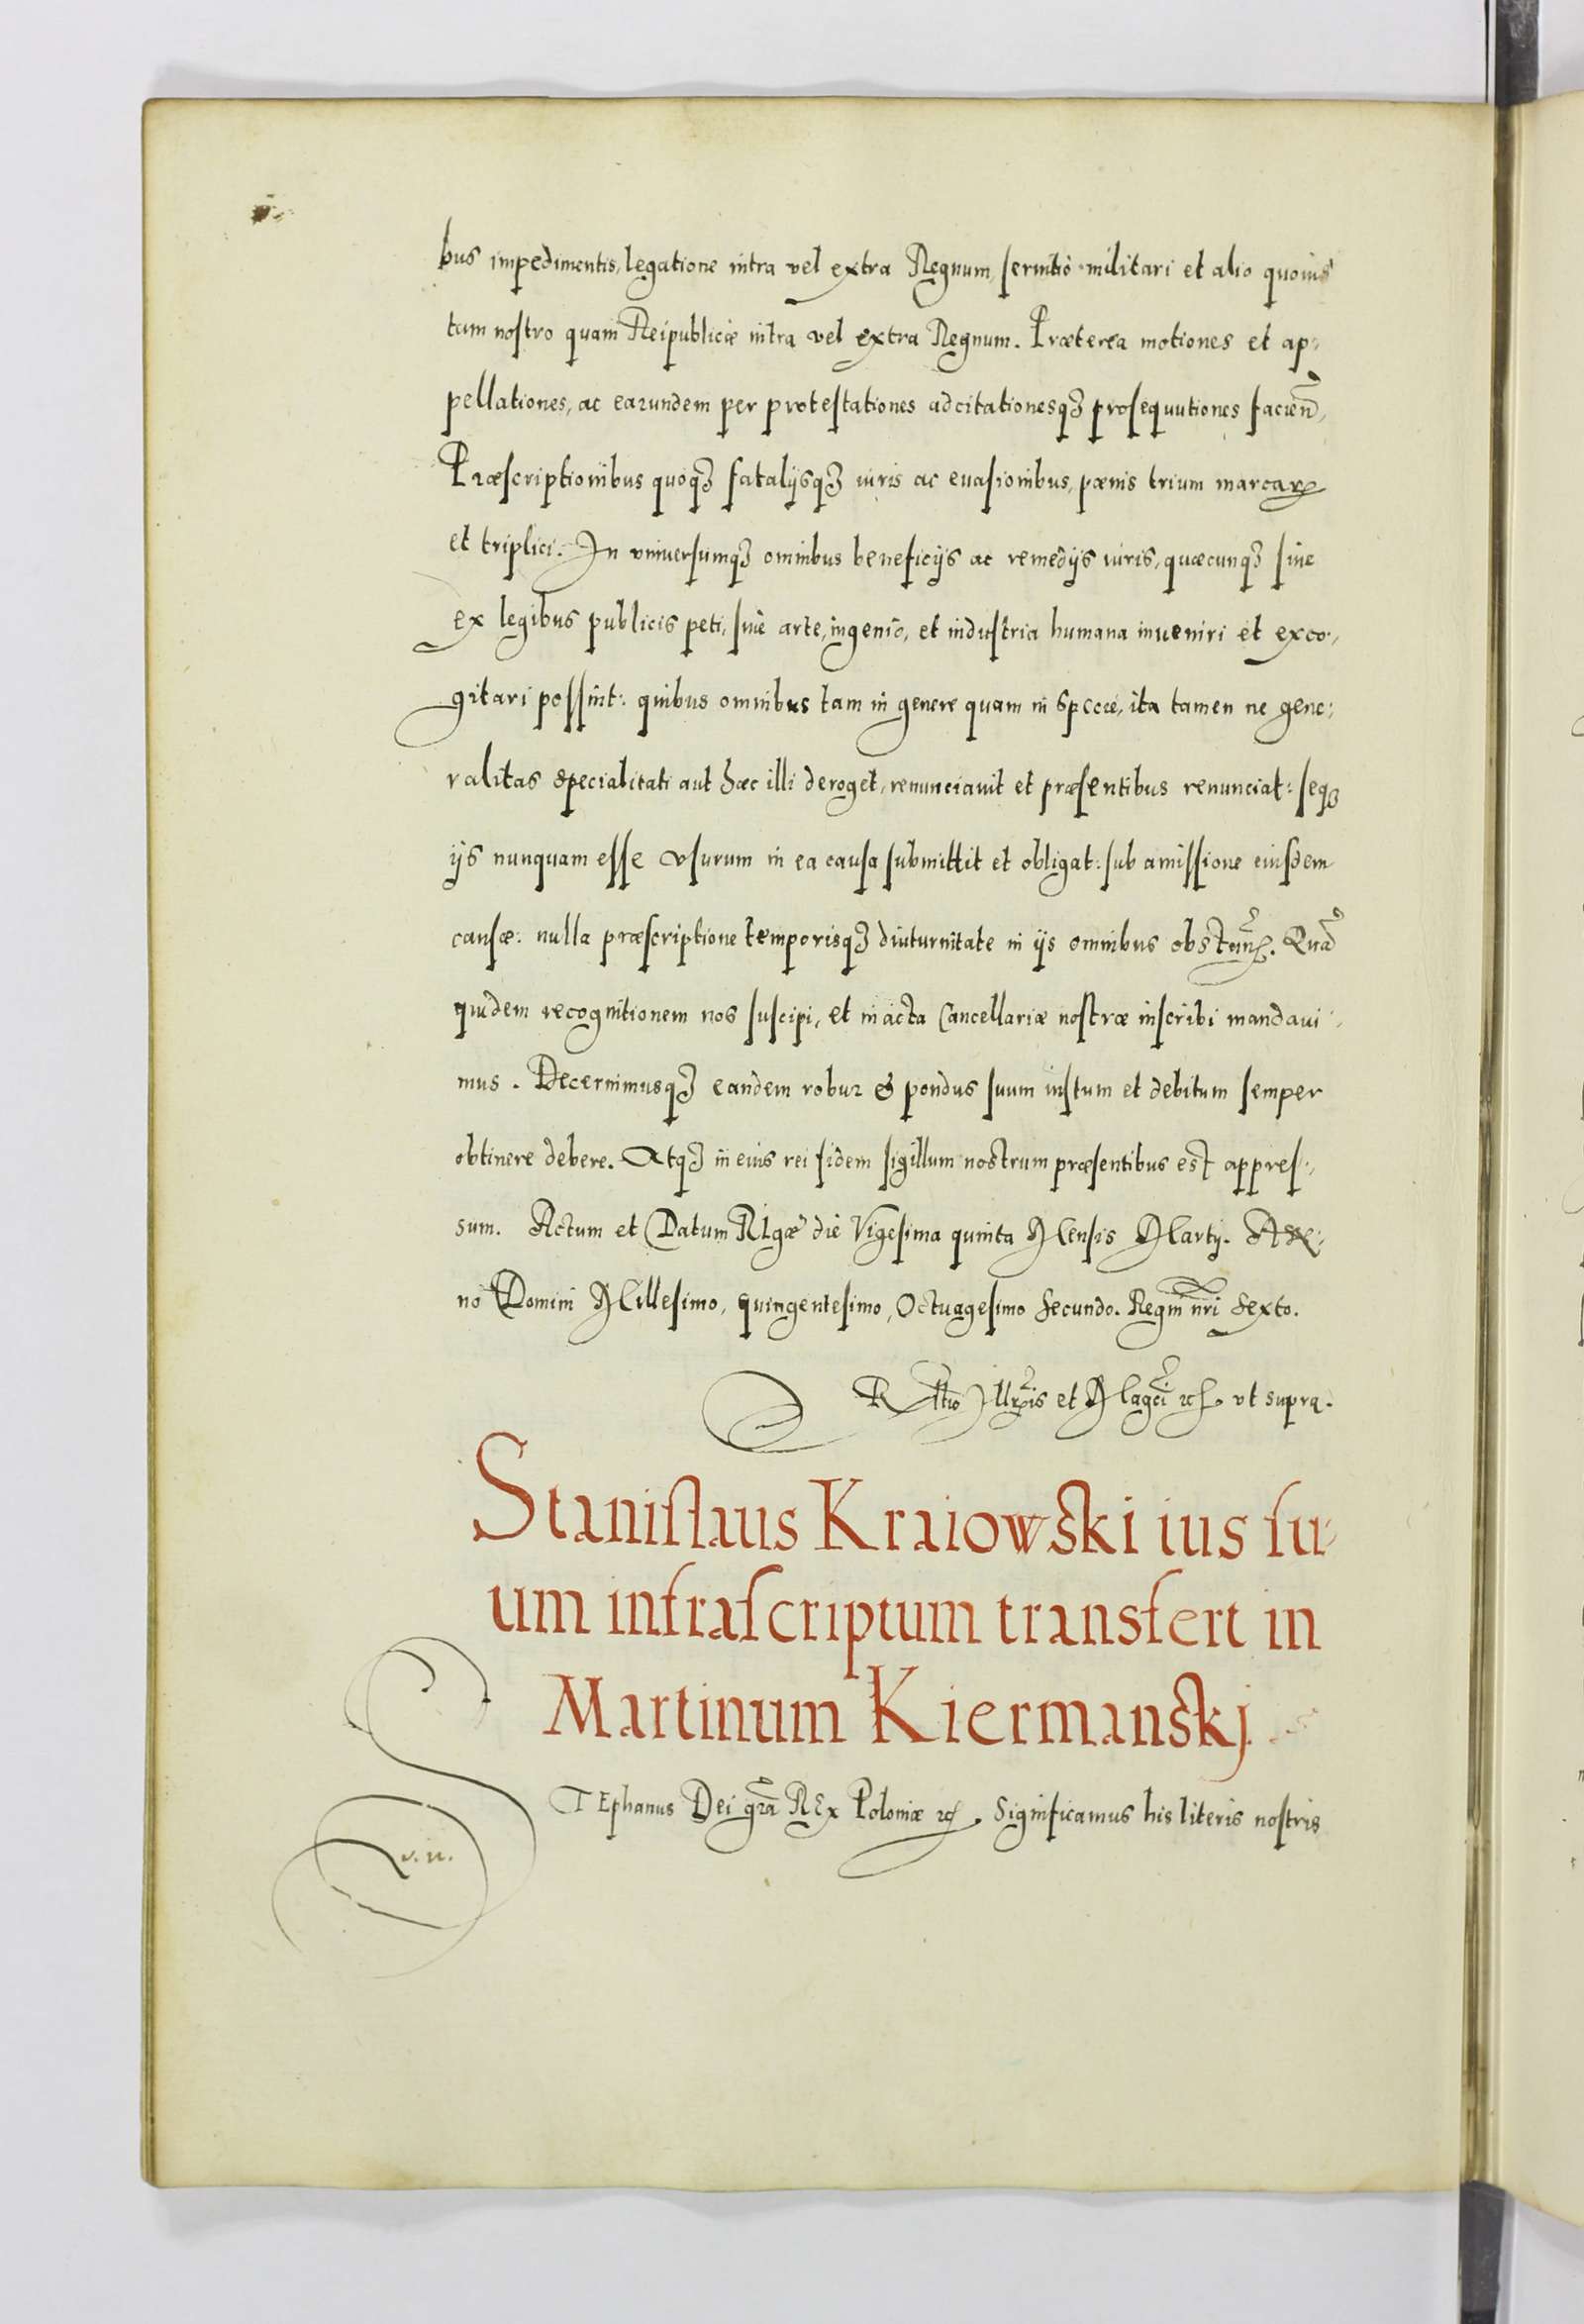 bus impedimentis, legatione intra vel extra Regnum, seruitio militari et alio quouis
tam nostro quam Reipublicæ intra vel extra Regnum. Præterea motiones et ap-
pellationes, ac earundem per protestationes adcitationesqȝ prosequutiones facien̄,
Præscriptionibus quoqȝ fatalijsqȝ iuris ac euasionibus, pœnis trium marcaꝝ
et triplici. In vniuersumqȝ omnibus beneficijs ac remedijs iuris, quæcunqȝ siue
ex legibus publicis peti, siue arte, ingenio, et industria humana inueniri et exco-
gitari possint: quibus omnibus tam in genere quam in specie, ita tamen ne gene-
ralitas specialitati aut hæc illi deroget, renunciauit et præsentibus renunciat: seqȝ
ijs nunquam esse vsurum in ea causa submittit et obligat: sub amissione eiusdem
causæ: nulla præscriptione temporisqȝ diuturnitate in ijs omnibus obstan̄. Quā
quidem recognitionem nos suscipi, et in acta Cancellariæ nostræ inscribi mandaui-
mus. Decernimusqȝ eandem robur & pondus suum iustum et debitum semper
obtinere debere. Atqȝ in eius rei fidem sigillum nostrum præsentibus est appres-
sum. Actum et Datum Rigæ die Vigesima quinta Mensis Martij. An-
no Domini Millesimo, quingentesimo, Octuagesimo Secundo. Regni nr̄i Sexto.
Rltio Illr̄is et Magci ꝛc. vt supra.
Stanislaus Kraiowski ius su-
um infrascriptum transfert in
Martinum Kiermanskj
STEphanus Dei gr̄a REx Poloniæ ꝛc. Significamus his literis nostris